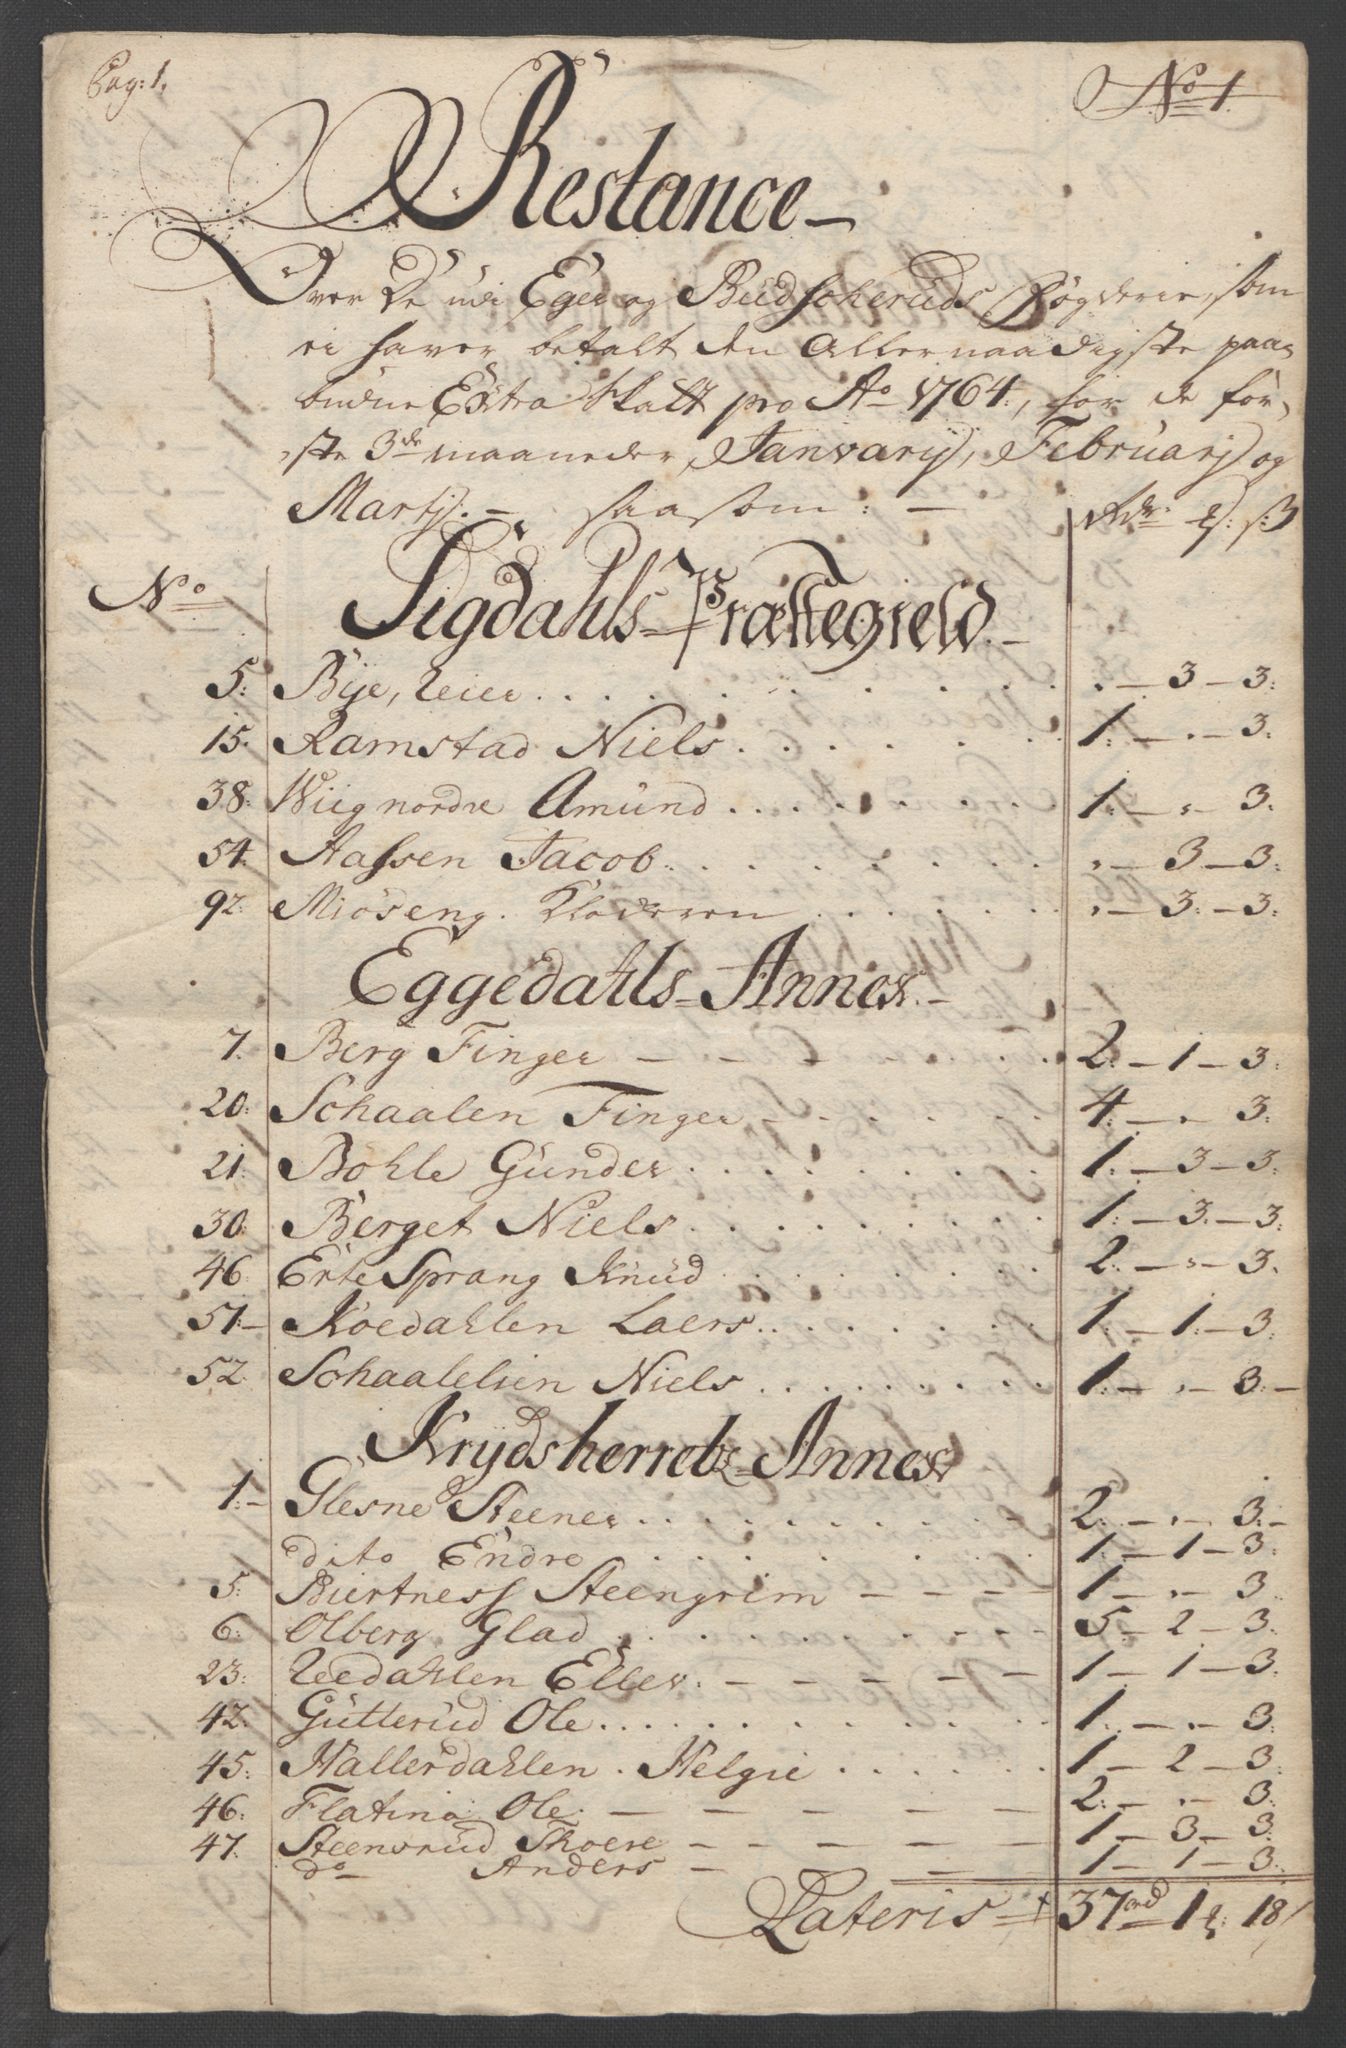 Pag: 1.
No 1.
Restance
Over De udi Eger og Budscheruds Fögderie, som
ei haver betalt den Allernaadigste paa-
budne Extra Skatt pro Ao 1764, for de för-
ste 3de maaneder, Janvarij, Februarij og
Martij. - saasom: -
No
Rdr. ß:
Sigdahls Præstegield.
5: Bye, Leier . . . . . . . - 3 - 3:
15. Ramstad Niels . . . . . . 1: - . - 3.
38: Wiig nordre Amund . . . . . . 1: - " - 3.
54. Aassen Jacob . . . . . . " - 3 - 3:
92. Miöseng. Klokeren . . . . . . " - 3: - 3:
Eggedahls Annex.
7. Berg Finger - - - - 2: - 1 - 3:
20: Schaalen Finger - . . . . 4: - . - 3:
21. Bohle Gunder . . . . . . 1: - 3 - 3:
30: Berget Niels . . . . . . 1: - 3. - 3:
46. Erte Sprang Knud . . . . . . 2: - " - 3.
51. - Koedahlen Laers . . . . . . 1: - 1: - 3:
52. Schaalelien Niels . . . . . . 1: - . - 3: -
Krydsherrets Annex
1: - Glesne Steener . . . . . . 2: - . - 3: -
dito Endre . . . . . . 1: - 1 - 3:
5: Biertness Steengrim - - - - 1 - . - 3
6: Olberg Glad . . . . . . 5 - 2 - 3:
23: Leedahlen Eller. - - - - 1 - 1 - 3:
42: Gutterud Ole . . . . . . 1: - . - 3:
45: Hallerdahlen. Helgie . . . . . . 1 - 2 - 3:
46: Flatin Ole. - - - - 2: - . - 3:
47. Steensrud Thoere - - - - 1 - 3 - 3:
do Anders - - 1 - 1 - 3.
Lateris 37rd 1 : 18